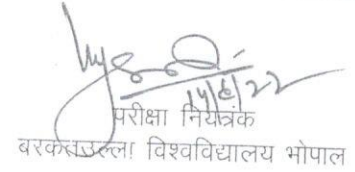 14/6/22
परीक्षा नियंत्रक
बरकतउल्ला विश्वविद्यालय भोपाल